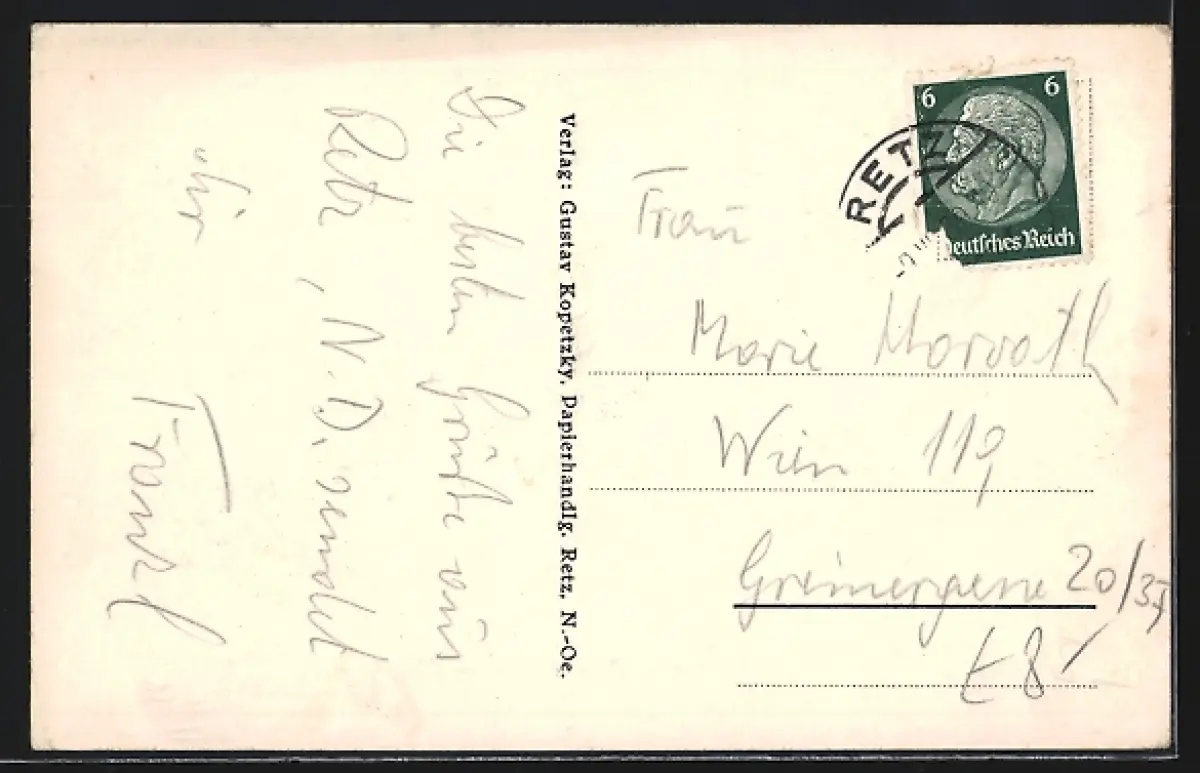 Die besten Grüße aus
Retz, N. D. sendet
dir
Franzl
Verlag: Gustav Kopetzky, Papierhandlg. Retz, N.-Oe.
6 6
Deutsches Reich
RETZ
Frau
Marie Horvath
Wien 119
Greinergasse 20/37
t 8